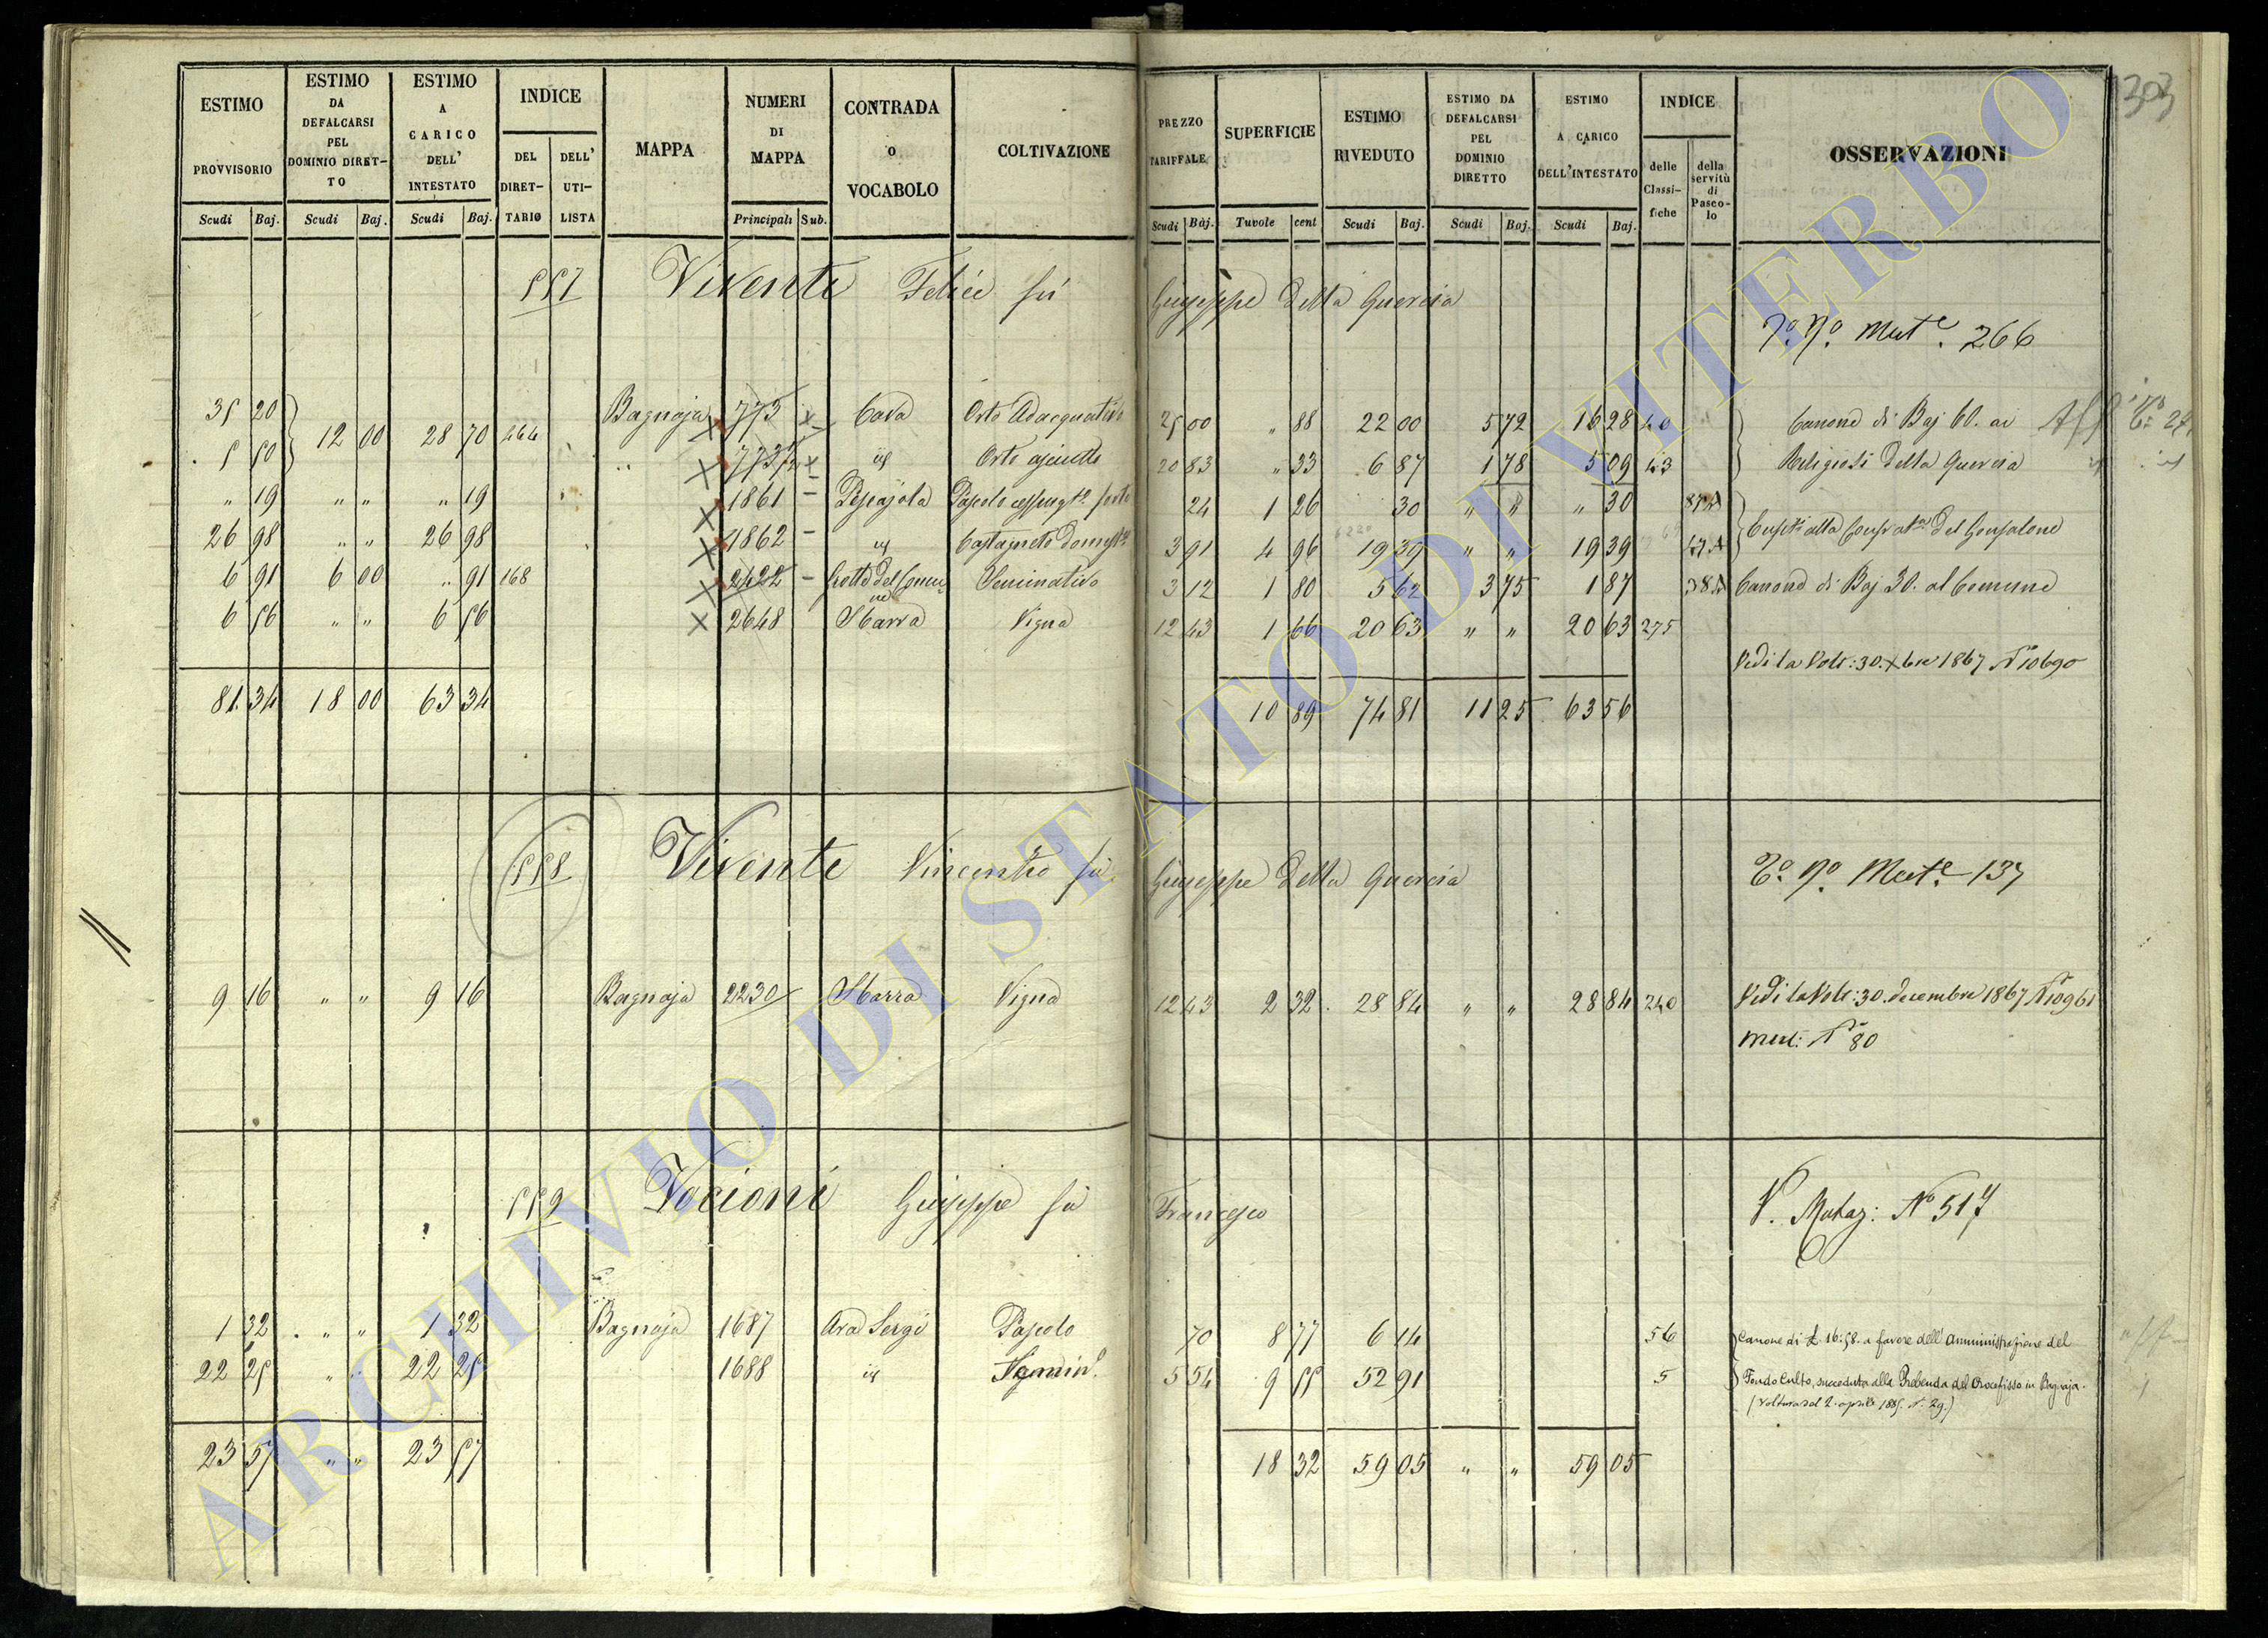 ESTIMO PROVVISORIO Scudi Baj.
ESTIMO DA DEFALCARSI PEL DOMINIO DIRET-TO Scudi Baj.
ESTIMO A CARICO DELL' INTESTATO Scudi Baj.
INDICE DEL DIRET-TARIO DELL' UTI-LISTA
MAPPA
NUMERI DI MAPPA Principali Sub.
CONTRADA O VOCABOLO
COLTIVAZIONE
PREZZO TARIFFALE Scudi Baj.
SUPERFICIE Tavole cent
ESTIMO RIVEDUTO Scudi Baj.
ESTIMO DA DEFALCARSI PEL DOMINIO DIRETTO Scudi Baj.
ESTIMO A CARICO DELL'INTESTATO Scudi Baj.
INDICE delle Classi-fiche della servitù di Pasco-lo
OSSERVAZIONI
303
557 Vivente Felice fu Giuseppe della Quercia
Mut.e 266
35 20 12 00 28 70 264 Bagnaja 773 Cava Orto Adacquativo 25 00 " 88 22 00 5 72 16 28 40 Canone di Baj 60. ai
5 50 " 773 id Orto asciutto 20 83 " 33 6 87 1 78 5 09 43 Religiosi della Quercia
" 19 " " " 19 1861 Pascolo 24 1 26 30 " " " 30
26 98 " " 26 98 1862 id Castagneto 3 91 4 96 19 39 " " 19 39 del Gonfalone
6 91 6 00 " 91 168 2422 Grotte del Comune Seminativo 3 12 1 80 5 62 3 75 1 87 Canone di Baj 30. al Comune
6 56 " " 6 56 2648 Sbarra Vigna 12 43 1 66 20 63 " " 20 63 275
Vedi la Volt: 30. Xbre 1867 N° 10690
81 34 18 00 63 34 10 89 74 81 11 25 63 56
558 Vivente Vincenzo fu Giuseppe della Quercia
Mut.e 137
9 16 " " 9 16 Bagnaja 2230 Sbarra Vigna 12 43 2 32 28 84 " " 28 84 240 Vedi la Volt: 30. decembre 1867 N° 10961
Mut: N° 80
559 Vocioni Giuseppe fu Francesco
V. Mutaz: N° 517
1 32 " " 1 32 Bagnaja 1687 Ara Sergi Pascolo 70 8 77 6 14 56 Canone di £ 16:58. a favore dell'Amministrazione del
22 25 " " 22 25 1688 id Semin.o 5 54 9 55 52 91 5 Fondo Culto, succeduta alla Prebenda del Crocefisso in Bagnaja.
(Voltura del 2. aprile 1885. N. 29.)
23 57 " " 23 57 18 32 59 05 " " 59 05
ARCHIVIO DI STATO DI VITERBO